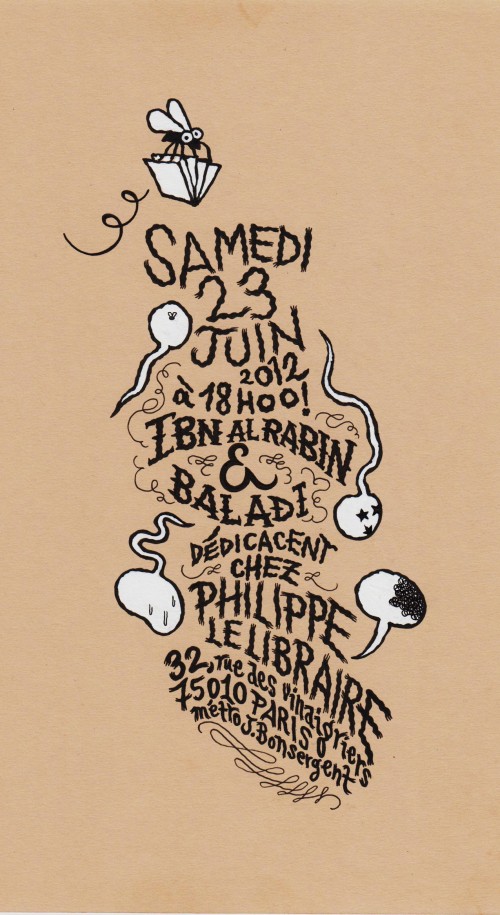 SAMEDI
23
JUIN
2012
à 18H00!
IBN AL RABIN
&
BALADI
DÉDICACENT
CHEZ
PHILIPPE
LE LIBRAIRE
32, rue des vinaigriers
75010 PARIS
métro J. Bonsergent